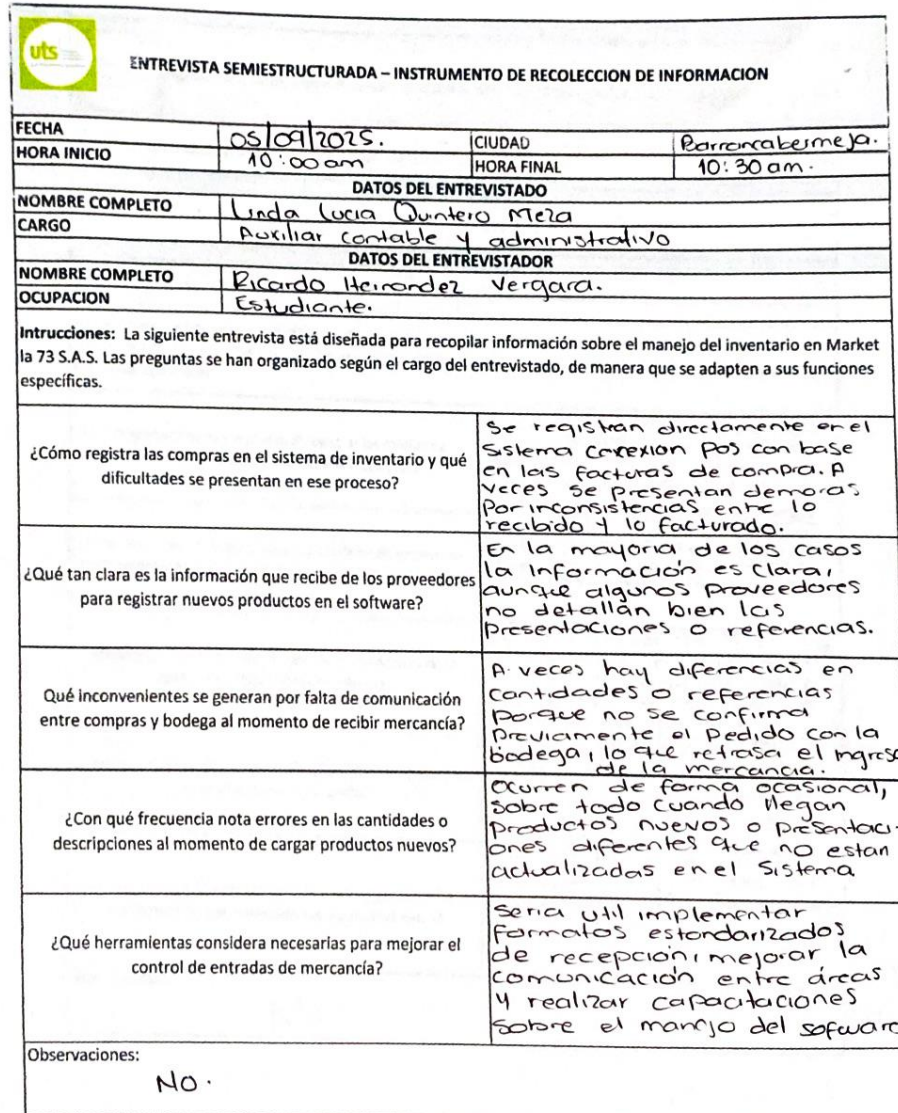 uts
ENTREVISTA SEMIESTRUCTURADA – INSTRUMENTO DE RECOLECCION DE INFORMACION
FECHA 05/09/2025. CIUDAD Barrancabermeja.
HORA INICIO 10:00 am HORA FINAL 10:30 am.
DATOS DEL ENTREVISTADO
NOMBRE COMPLETO Linda Lucia Quintero Meza
CARGO Auxiliar contable y administrativo
DATOS DEL ENTREVISTADOR
NOMBRE COMPLETO Ricardo Hernandez Vergara.
OCUPACION Estudiante.
Intrucciones: La siguiente entrevista está diseñada para recopilar información sobre el manejo del inventario en Market
la 73 S.A.S. Las preguntas se han organizado según el cargo del entrevistado, de manera que se adapten a sus funciones
específicas.
¿Cómo registra las compras en el sistema de inventario y qué
dificultades se presentan en ese proceso?
Se registran directamente en el
Sistema Conexion Pos con base
en las facturas de compra. A
veces se presentan demoras
Por inconsistencias entre lo
recibido y lo facturado.
¿Qué tan clara es la información que recibe de los proveedores
para registrar nuevos productos en el software?
En la mayoria de los casos
la Información es Clara,
aunque algunos proveedores
no detallan bien las
presentaciones o referencias.
Qué inconvenientes se generan por falta de comunicación
entre compras y bodega al momento de recibir mercancía?
A veces hay diferencias en
cantidades o referencias
porque no se confirma
previamente el pedido con la
bodega, lo que retrasa el ingreso
de la mercancia.
¿Con qué frecuencia nota errores en las cantidades o
descripciones al momento de cargar productos nuevos?
Ocurren de forma ocasional,
sobre todo cuando llegan
productos nuevos o presentaci-
ones diferentes que no estan
actualizadas en el Sistema
¿Qué herramientas considera necesarias para mejorar el
control de entradas de mercancía?
Seria util implementar
formatos estandarizados
de recepción, mejorar la
comunicación entre áreas
y realizar capacitaciones
sobre el manejo del sofware
Observaciones:
No.